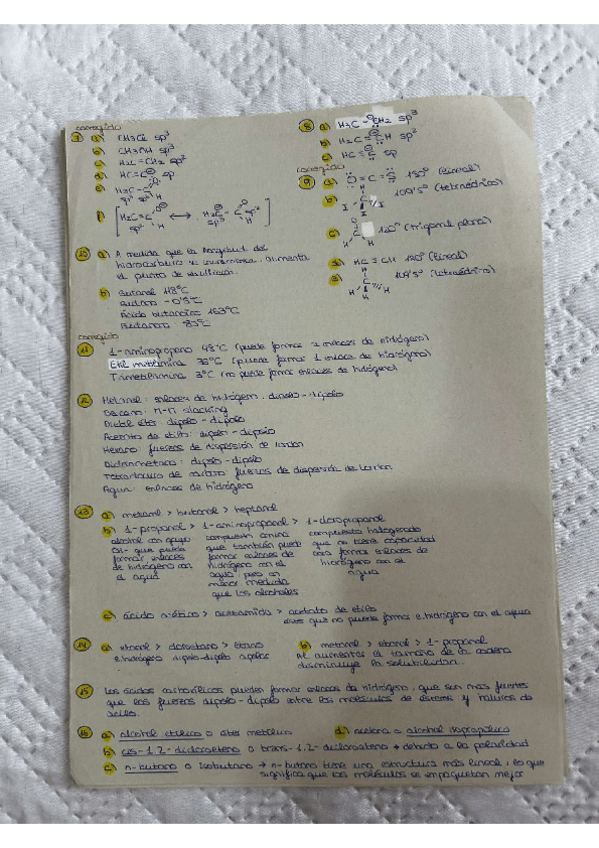 corregido
7 a) CH3Cl sp3
b) CH3OH sp3
c) H2C=CH2 sp2
d) HC≡C sp
e) H3C-C
f) H2C=C ↔ H2C-C
8 a) H3C-CH2 sp3
b) H2C=CH sp2
c) HC≡C sp
corregido
9 a) O=C=S 180° (lineal)
b) 109'5° (tetraédrica)
c) 120° (trigonal plana)
d) HC≡CH 180° (lineal)
e) 109'5° (tetraédrica)
10 a) A medida que la longitud del
hidrocarburo se incrementa, aumenta
el punto de ebullición.
b) Butanol 118°C
Butano -0'5°C
Ácido butanoico 163°C
corregido
11 1-aminopropano 48°C (puede formar 2 enlaces de hidrógeno)
Etil metilamina 36°C (puede formar 1 enlace de hidrógeno)
Trimetilamina 3°C (no puede formar enlaces de hidrógeno)
12 Metanol: enlaces de hidrógeno, dipolo-dipolo
stacking
Dietil éter: dipolo-dipolo
Acetato de etilo: dipolo-dipolo
Hexano: fuerzas de dispersión de London
Diclorometano: dipolo-dipolo
Tetracloruro de carbono: fuerzas de dispersión de London
Agua: enlaces de hidrógeno
13 a) metanol > butanol > heptanol
b) 1-propanol > 1-aminopropanol > 1-cloropropanol
alcohol con grupo
OH- que puede
formar enlaces
de hidrógeno con
el agua
compuesto amina
que también puede
formar enlaces de
hidrógeno con el
agua, pero en
menor medida
que los alcoholes
compuesto halogenado
que no tiene capacidad
para formar enlaces de
hidrógeno con el
agua
c) ácido acético > acetamida > acetato de etilo
éster que no puede formar e.hidrógeno con el agua
14 a) etanol > cloroetano > etano
e.hidrógeno dipolo-dipolo apolar
b) metanol > etanol > 1-propanol
Al aumentar el tamaño de la cadena
disminuye la solubilidad.
15 Los ácidos carboxílicos pueden formar enlaces de hidrógeno, que son más fuertes
que las fuerzas dipolo-dipolo entre las moléculas de ésteres y haluros de
acilo.
16 a) alcohol etílico o éter metílico
d) acetona o alcohol isopropílico
b) cis-1,2-dicloroeteno o trans-1,2-dicloroeteno → debido a la polaridad
c) n-butano o isobutano → n-butano tiene una estructura más lineal, lo que
significa que las moléculas se empaquetan mejor